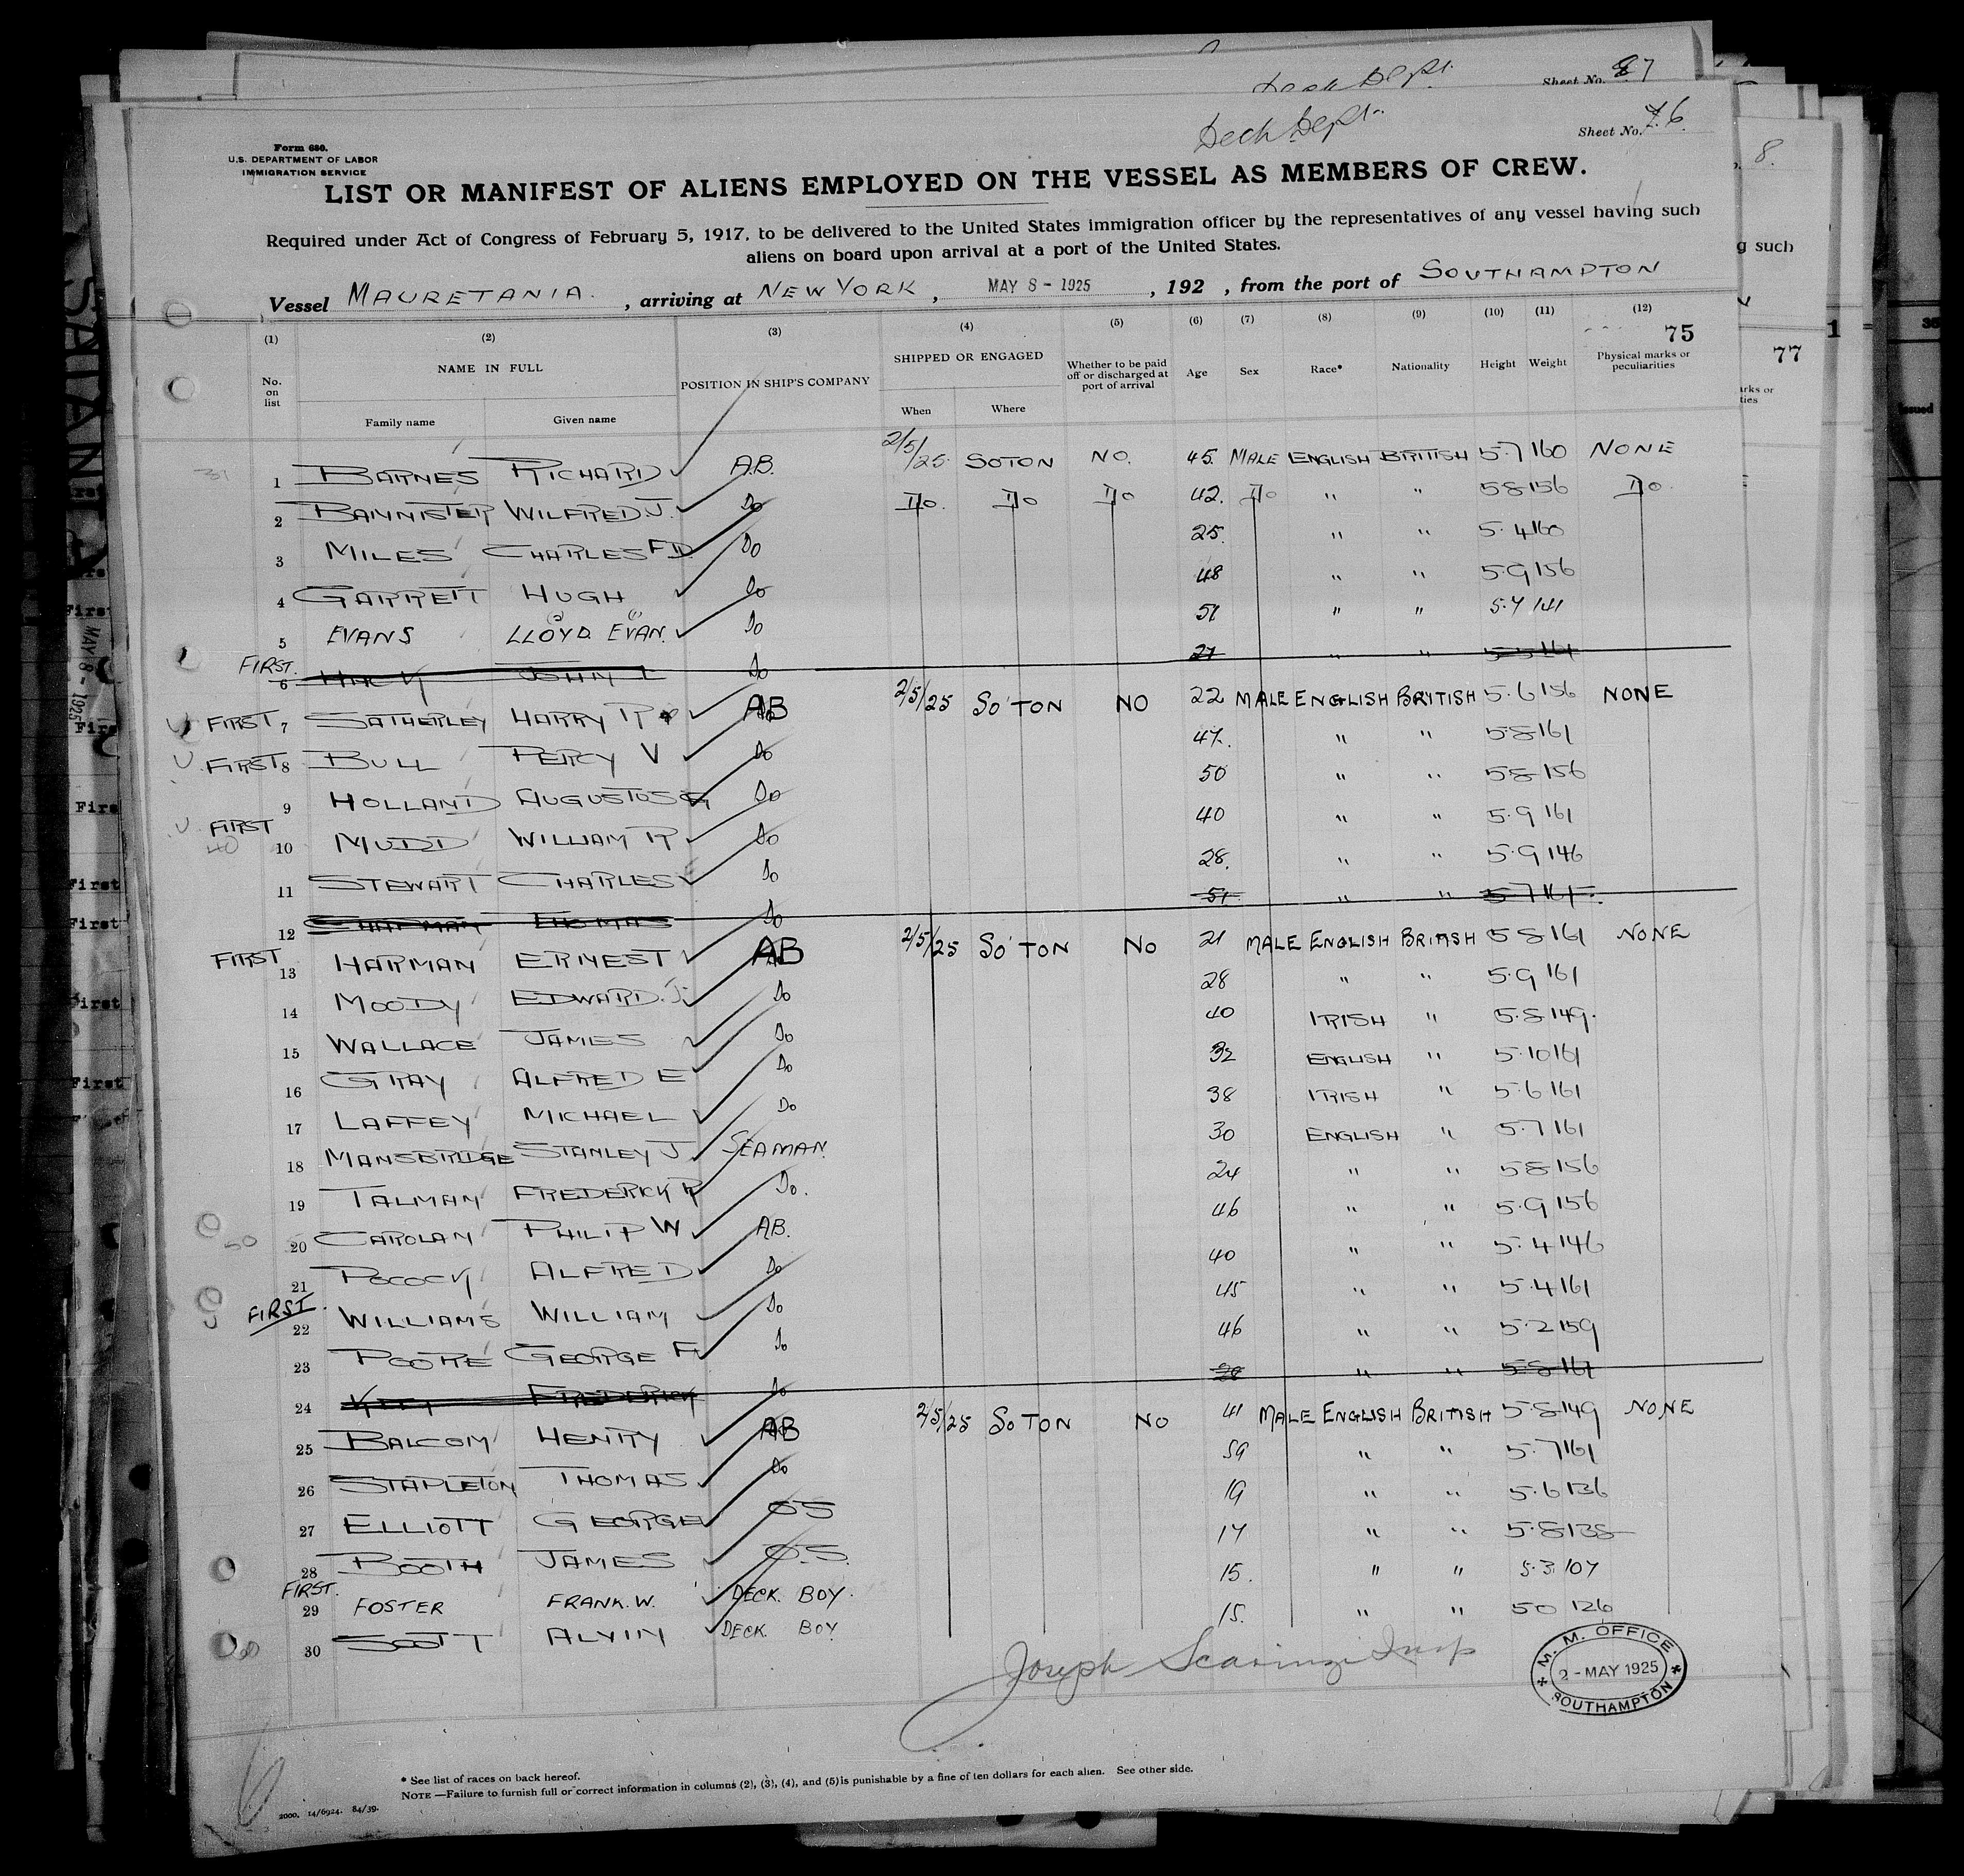 Deck Dept. Sheet No. 87
Deck Dept. Sheet No. 76
Form 680.
U.S. DEPARTMENT OF LABOR
IMMIGRATION SERVICE
LIST OR MANIFEST OF ALIENS EMPLOYED ON THE VESSEL AS MEMBERS OF CREW.
Required under Act of Congress of February 5, 1917, to be delivered to the United States immigration officer by the representatives of any vessel having such
aliens on board upon arrival at a port of the United States.
Vessel MAURETANIA. , arriving at NEW YORK , MAY 8 - 1925 , 192 , from the port of SOUTHAMPTON
(1) (2) (3) (4) (5) (6) (7) (8) (9) (10) (11) (12)
75
No. on list NAME IN FULL POSITION IN SHIP'S COMPANY SHIPPED OR ENGAGED Whether to be paid off or discharged at port of arrival Age Sex Race* Nationality Height Weight Physical marks or peculiarities
Family name Given name When Where
1 BARNES RICHARD A.B. 2/5/25 SOTON NO. 45. MALE ENGLISH BRITISH 5.7 160 NONE
2 BANNISTER WILFRED.J. Do Do. Do Do 42. Do " " 5 8 156 Do.
3 MILES CHARLES F.D. Do 25. " " 5.4 160
4 GARRETT HUGH Do 48 " " 5.9 156
5 EVANS LLOYD EVAN. Do 51 " " 5.7 141
FIRST. 6 JOHN Do 27 " "
FIRST 7 SATHERLEY HARRY R AB 2/5/25 SO'TON NO 22 MALE ENGLISH BRITISH 5.6 156 NONE
FIRST 8 BULL PERCY V Do 47. " " 5 8 161
9 HOLLAND AUGUSTUS G Do 50 " " 5 8 156
FIRST 10 MUDD WILLIAM R Do 40 " " 5.9 161
11 STEWART CHARLES E Do 28. " " 5.9 146
12 CHAPMAN THOMAS Do 51 " " 5 7 161
FIRST 13 HARMAN ERNEST AB 2/5/25 SO'TON NO 21 MALE ENGLISH BRITISH 5 8 161 NONE
14 MOODY EDWARD.J. Do 28 " " 5.9 161
15 WALLACE JAMES Do 40 IRISH " 5.8 149.
16 GRAY ALFRED E Do 32 ENGLISH " 5.10 161
17 LAFFEY MICHAEL Do 38 IRISH " 5.6 161
18 MANSBRIDGE STANLEY J SEAMAN. 30 ENGLISH " 5.7 161
19 TALMAN FREDERICK R Do. 24 " " 5 8 156
20 CAROLAN PHILIP W AB. 46 " " 5.9 156
21 POCOCK ALFRED Do 40 " " 5.4 146
FIRST. 22 WILLIAMS WILLIAM Do 45 " " 5.4 161
23 POORE GEORGE H Do 46 " " 5.2 159
24 FREDERICK Do " " 5 8 161
25 BALCOM HENRY AB 2/5/25 SOTON NO 41 MALE ENGLISH BRITISH 5.8 149 NONE
26 STAPLETON THOMAS Do 59 " " 5.7 161
27 ELLIOTT GEORGE OS 19 " " 5.6 136
28 BOOTH JAMES O.S. 17 " " 5.8 138
FIRST. 29 FOSTER FRANK.W. DECK BOY. 15. " " 5.3 107
30 SCOTT ALVIN DECK BOY 15. " " 5 0 126
Joseph Scaringi Insp
M. M. OFFICE
2 - MAY 1925
SOUTHAMPTON
* See list of races on back hereof.
NOTE.—Failure to furnish full or correct information in columns (2), (3), (4), and (5) is punishable by a fine of ten dollars for each alien. See other side.
2000. 14/6924. 84/39.
8.
g such
77
arks or
ties
1